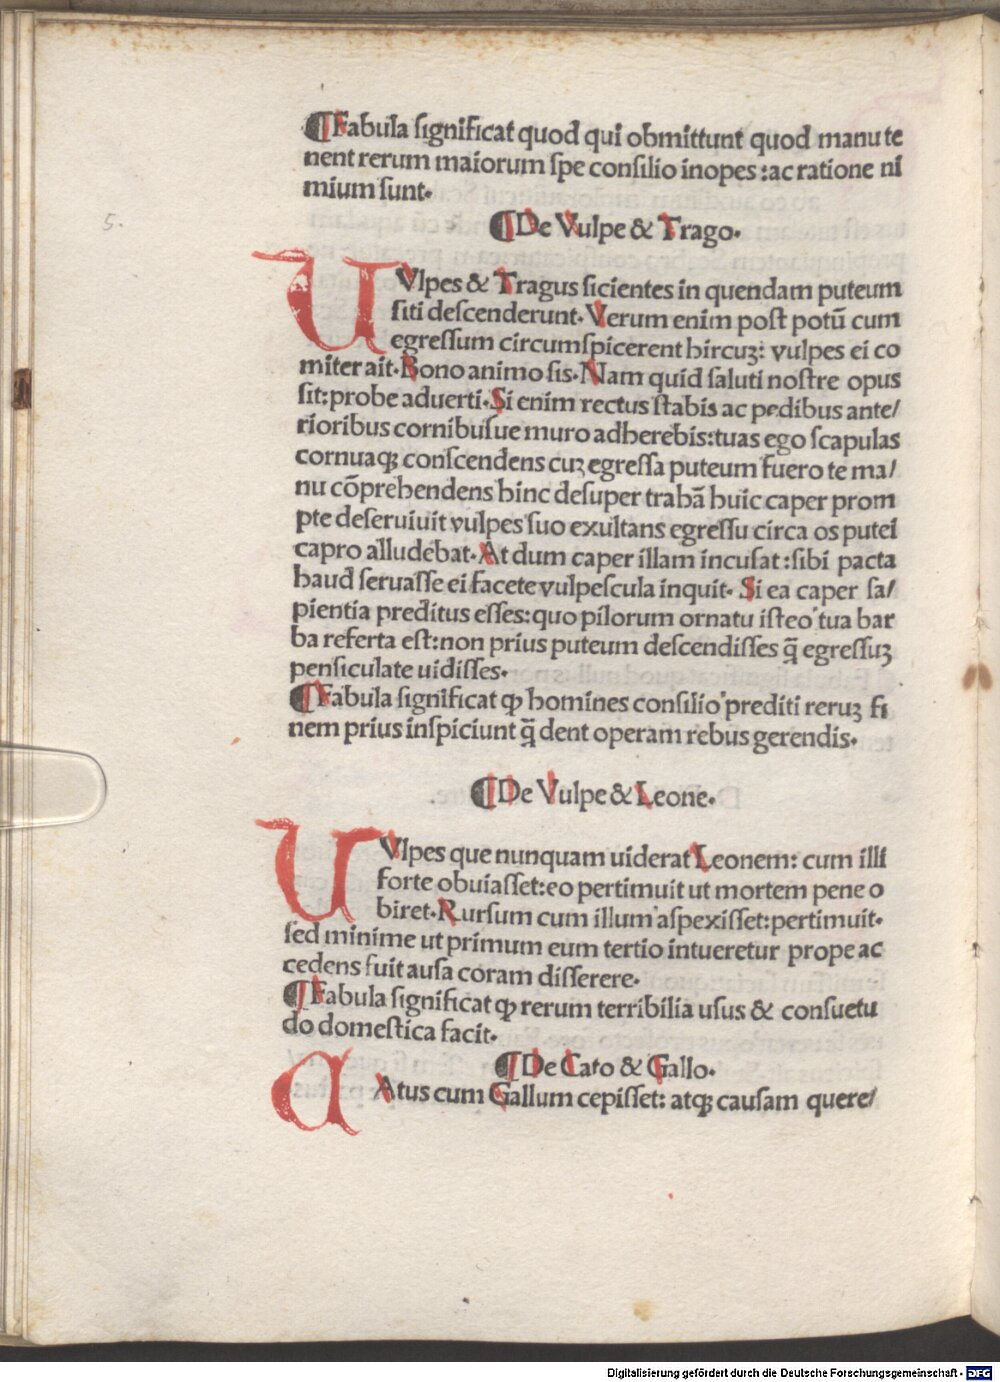 ¶Fabula ſignificat quod qui obmittunt quod manu te
nent rerum maiorum ſpe conſilio inopes :ac ratione ni
mium ſunt.
¶De Vulpe & Trago.
5.
U Vlpes & Tragus ſicientes in quendam puteum
ſiti deſcenderunt. Verum enim poſt potū cum
egreſſum circumſpicerent hircuꝫ: vulpes ei co
miter ait. Bono animo ſis. Nam quid ſaluti noſtre opus
ſit: probe aduerti. Si enim rectus ſtabis ac pedibus ante/
rioribus cornibuſue muro adherebis: tuas ego ſcapulas
cornuaqꝫ conſcendens cuꝫ egreſſa puteum fuero te ma/
nu cōprehendens hinc deſuper trahā huic caper prom
pte deſeruiuit vulpes ſuo exultans egreſſu circa os putei
capro alludebat. At dum caper illam incuſat : ſibi pacta
haud ſeruaſſe ei facete vulpeſcula inquit. Si ea caper ſa/
pientia preditus eſſes: quo pilorum ornatu iſteo tua bar
ba referta eſt: non prius puteum deſcendiſſes q̄ egreſſuꝫ
penſiculate uidiſſes.
¶Fabula ſignificat ꝙ homines conſilio prediti reruꝫ fi
nem prius inſpiciunt q̄ dent operam rebus gerendis.
¶De Vulpe & Leone.
U Vlpes que nunquam uiderat Leonem: cum illi
forte obuiaſſet: eo pertimuit ut mortem pene o
biret. Rurſum cum illum aſpexiſſet: pertimuit.
ſed minime ut primum eum tertio intueretur prope ac
cedens fuit auſa coram diſſerere.
¶Fabula ſignificat ꝙ rerum terribilia uſus & conſuetu
do domeſtica facit.
¶De Cato & Gallo.
A Atus cum Gallum cepiſſet: atqꝫ cauſam quere/
Digitalisierung gefördert durch die Deutsche Forschungsgemeinschaft - DFG